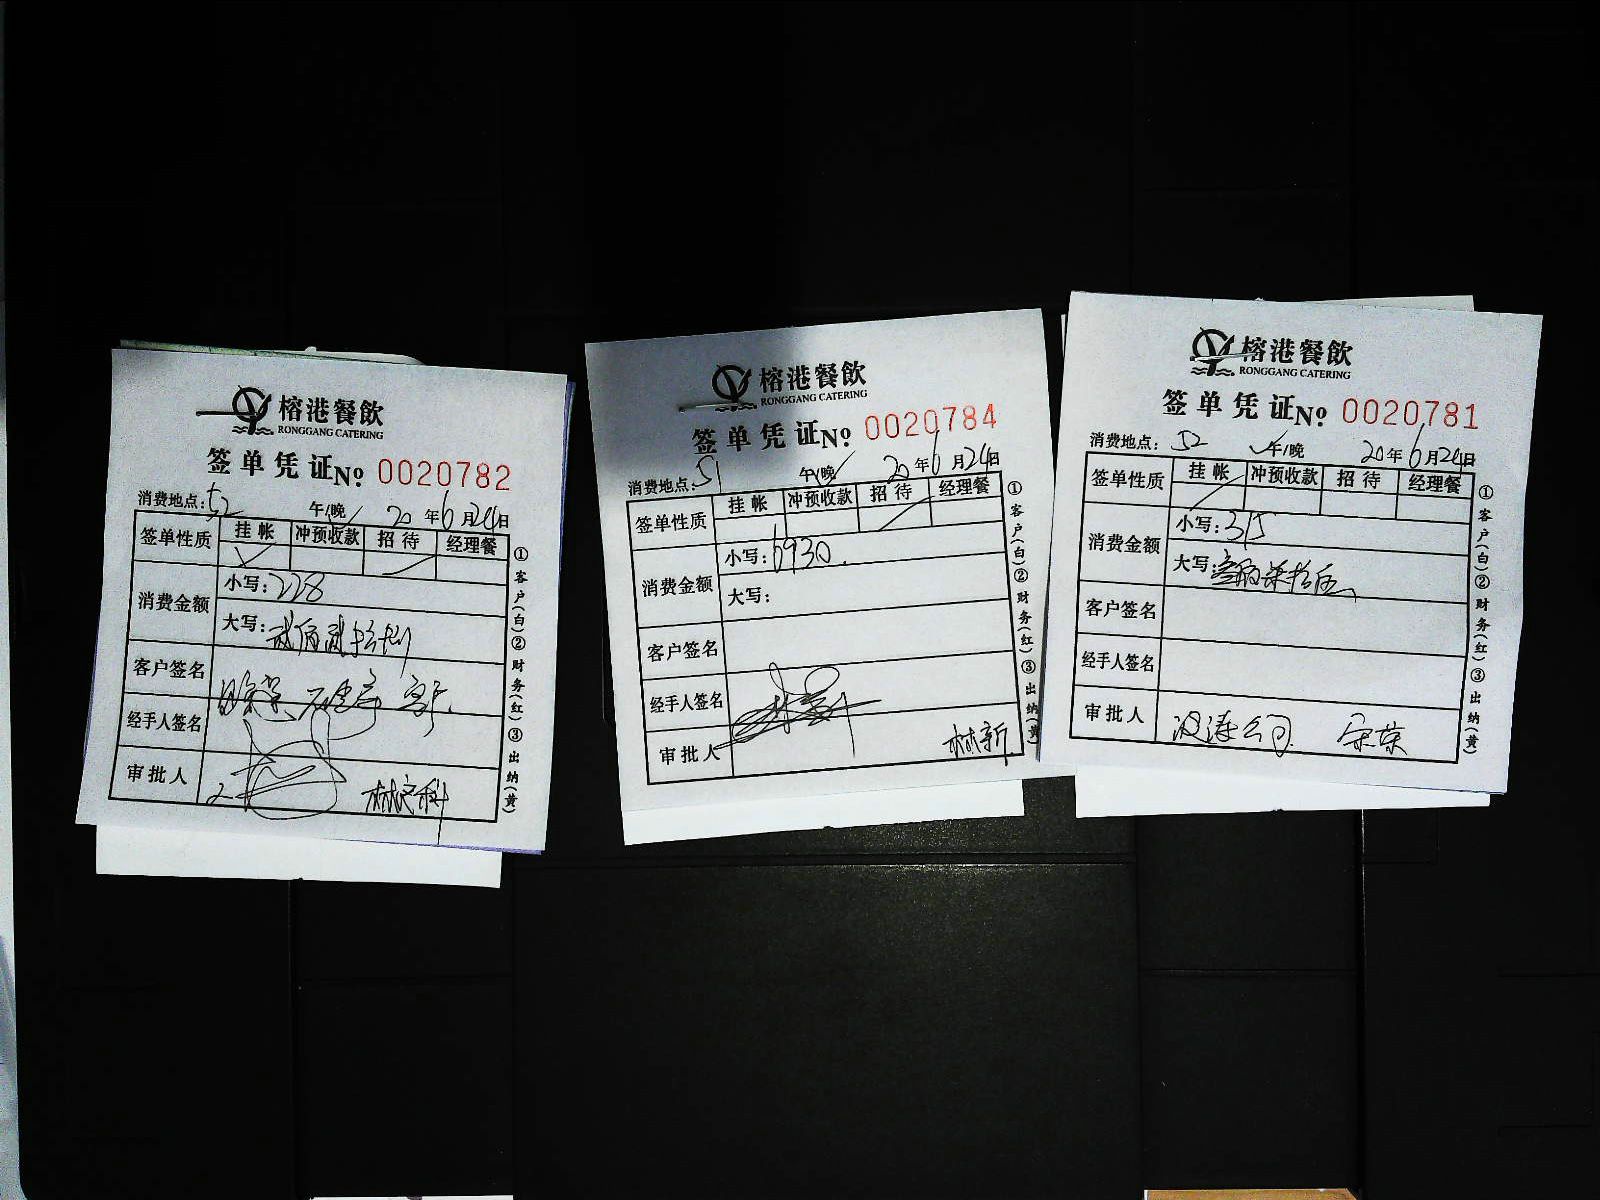 榕港餐飲
RONGGANG CATERING
签单凭证 No 0020782
消费地点: 52 午/晚 20年6月24日
签单性质 挂帐 冲预收款 招待 经理餐
消费金额 小写: 228
大写:
客户签名
经手人签名
审批人
①客户(白)②财务(红)③出纳(黄)
榕港餐飲
RONGGANG CATERING
签单凭证 No 0020784
消费地点: 51 午/晚 20年6月24日
签单性质 挂帐 冲预收款 招待 经理餐
消费金额 小写: 6930.
大写:
客户签名
经手人签名
审批人 林新
①客户(白)②财务(红)③出纳(黄)
榕港餐飲
RONGGANG CATERING
签单凭证 No 0020781
消费地点: 52 午/晚 20年6月24日
签单性质 挂帐 冲预收款 招待 经理餐
消费金额 小写: 315
大写:
客户签名
经手人签名
审批人 公司
①客户(白)②财务(红)③出纳(黄)